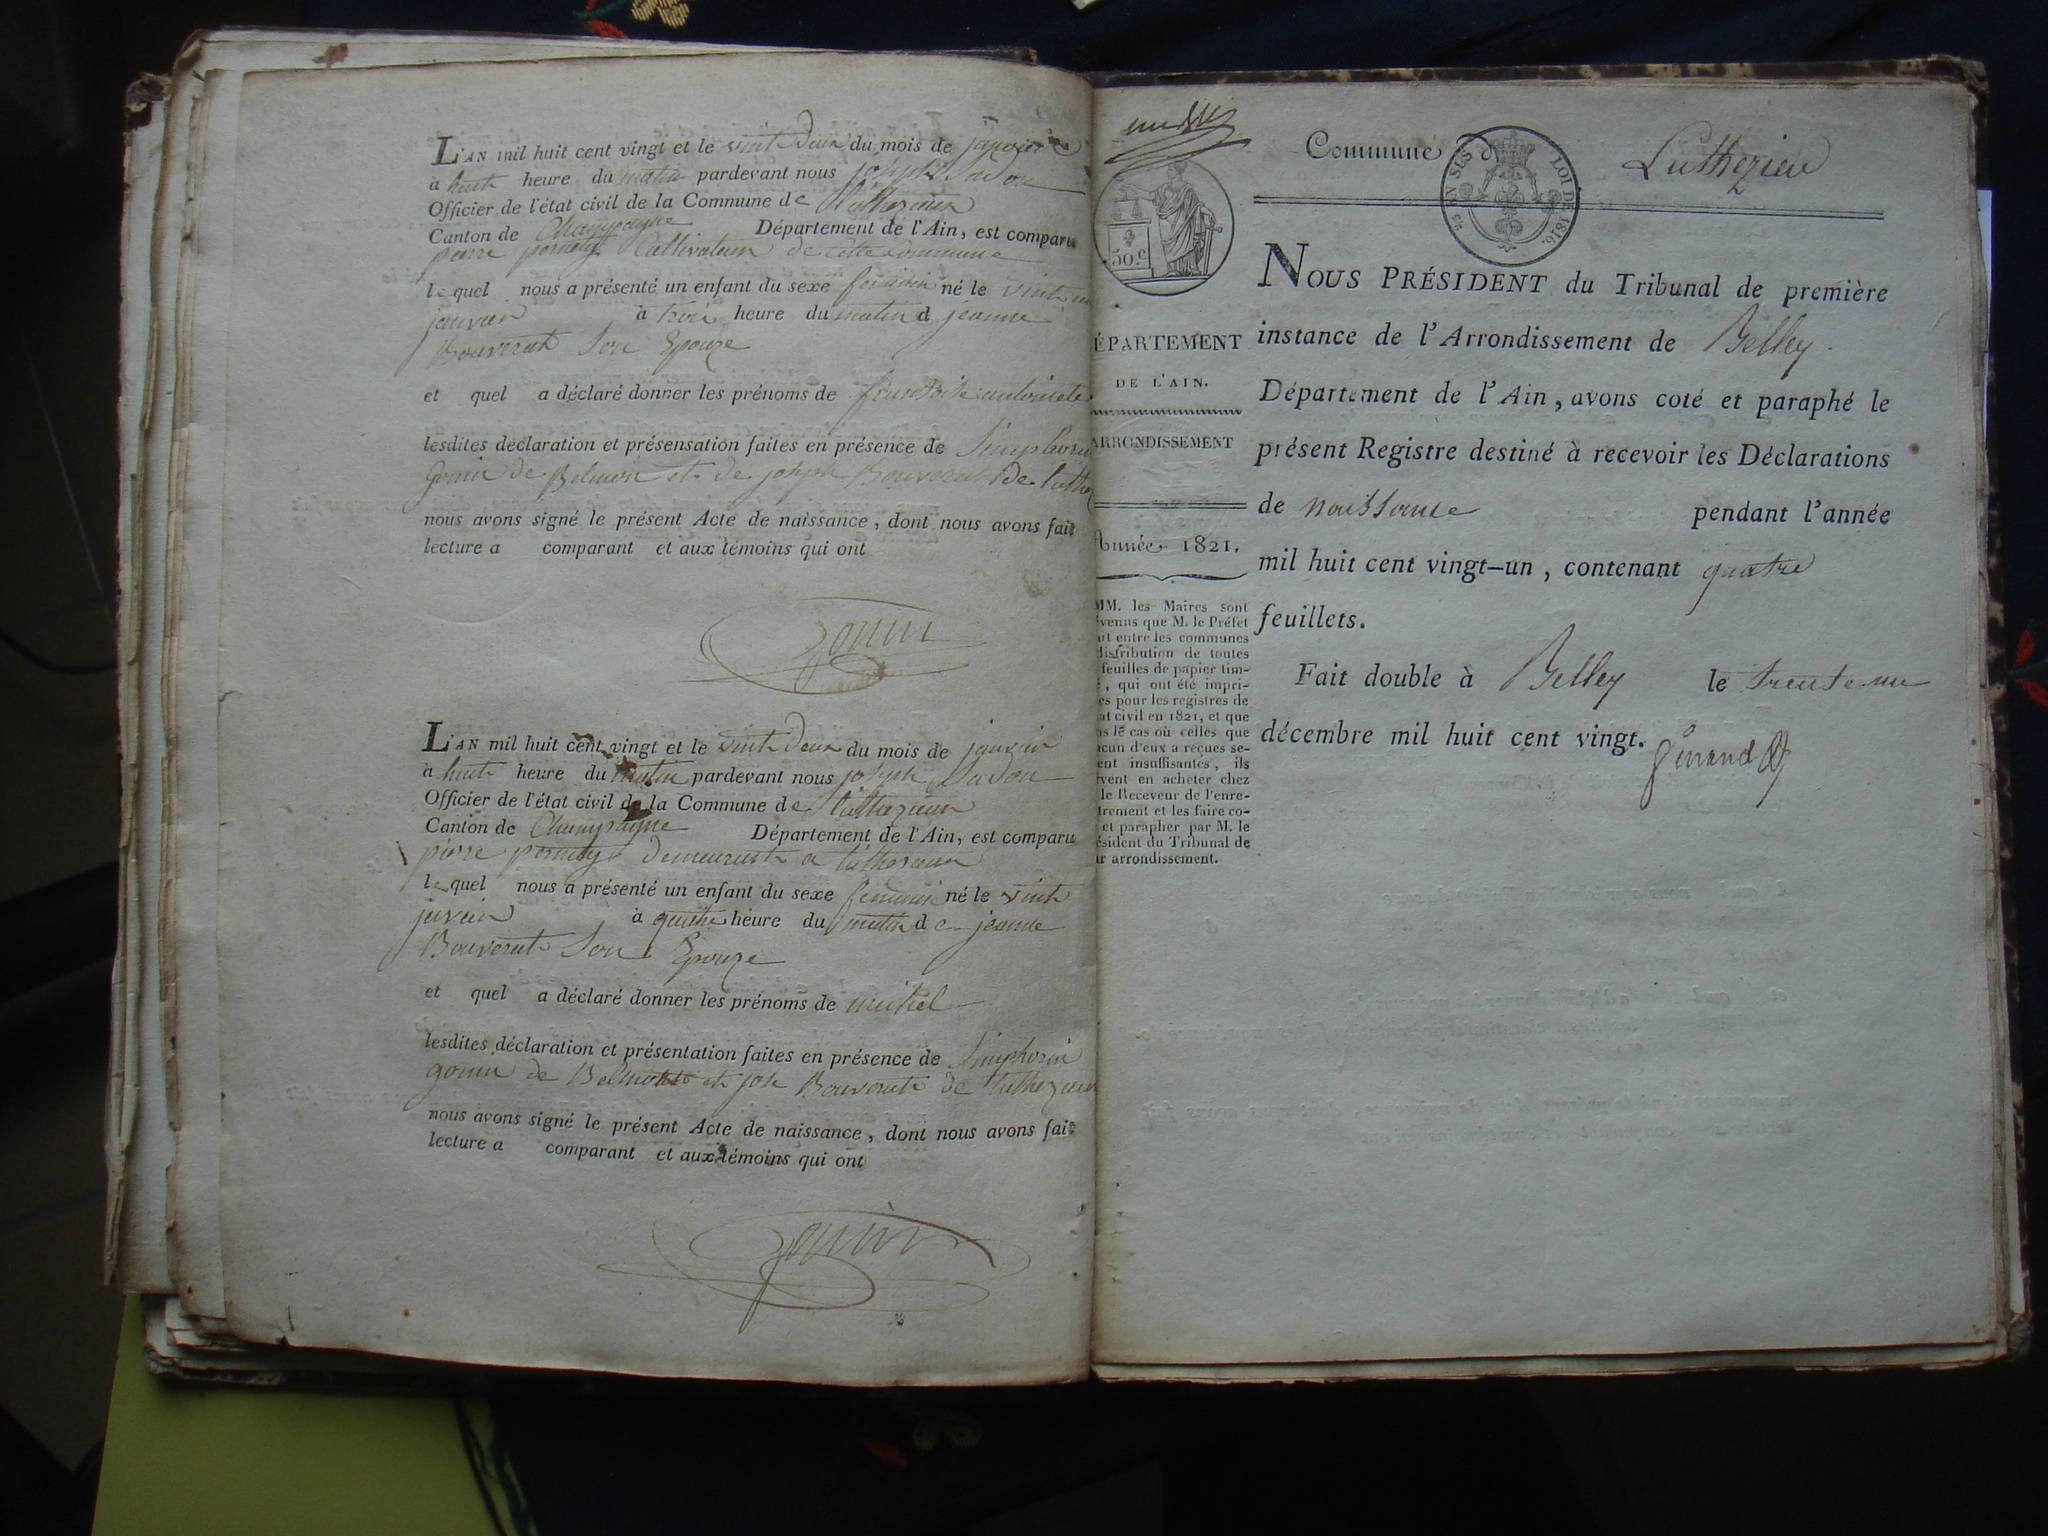 L'AN mil huit cent vingt et le vint deux du mois de janvier
à huit heure du matin pardevant nous joseph
Officier de l'état civil de la Commune de luthezieux
Canton de Champagne Département de l'Ain, est comparu
pierre Cultivateur de cette commune
lequel nous a présenté un enfant du sexe feminin né le vint un
janvier à trois heure du matin d jeanne
Bouverat Son Epouze
et quel a déclaré donner les prénoms de
lesdites déclaration et présensation faites en présence de Simphorin
gonin de Belmon et de joseph Bouverat de luthez
nous avons signé le présent Acte de naissance, dont nous avons fait
lecture a comparant et aux témoins qui ont
gonin
L'AN mil huit cent vingt et le vint deux du mois de janvier
à huit heure du matin pardevant nous joseph
Officier de l'état civil de la Commune de luthezieux
Canton de Champagne Département de l'Ain, est comparu
pierre demeurant a
lequel nous a présenté un enfant du sexe feminin né le vint
à quatre heure du matin de jeanne
Bouverat Son Epouze
et quel a déclaré donner les prénoms de
lesdites déclaration et présentation faites en présence de Simphorin
gonin de Belmont et jose Bouverat de luthezieux
nous avons signé le présent Acte de naissance, dont nous avons fait
lecture a comparant et aux témoins qui ont
gonin
50.c
DÉPARTEMENT
DE L'AIN.
ARRONDISSEMENT
Année 1821.
MM. les Maires sont
évenus que M. le Préfet
it entre les communes
distribution de toutes
feuilles de papier tim-
é, qui ont été impri-
es pour les registres de
at civil en 1821, et que
s le cas où celles que
cun d'eux a reçues se-
ent insuffisantes, ils
vent en acheter chez
le Receveur de l'enre-
trement et les faire co-
et parapher par M. le
ésident du Tribunal de
ur arrondissement.
Commune d Luthezieu
EN SUS LOI DE 1816.
NOUS PRÉSIDENT du Tribunal de première
instance de l'Arrondissement de Belley.
Département de l'Ain, avons coté et paraphé le
présent Registre destiné à recevoir les Déclarations
de naissance pendant l'année
mil huit cent vingt-un, contenant quatre
feuillets.
Fait double à Belley le trente un
décembre mil huit cent vingt.